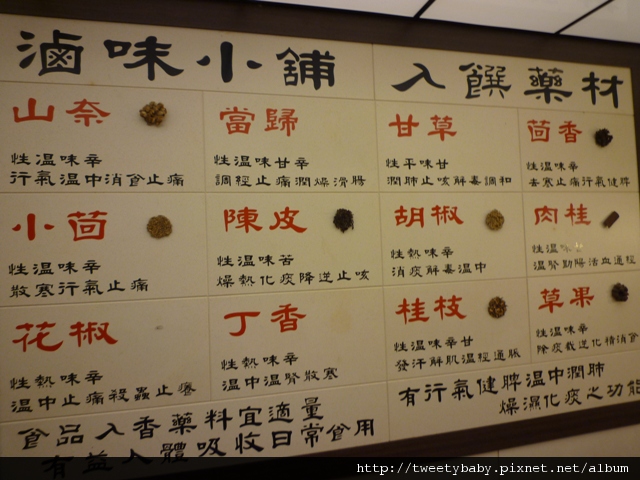 滷味小舖 入饌藥材
山奈
性溫味辛
行氣溫中消食止痛
當歸
性溫味甘辛
調經止痛潤燥滑腸
甘草
性平味甘
潤肺止咳解毒調和
茴香
性溫味辛
去寒止痛行氣健脾
小茴
性溫味辛
散寒行氣止痛
陳皮
性溫味苦
燥熱化痰降逆止咳
胡椒
性熱味辛
消痰解毒溫中
肉桂
性溫味
溫腎助陽活血通經
花椒
性熱味辛
溫中止痛殺蟲止癢
丁香
性熱味辛
溫中溫腎散寒
桂枝
性溫味辛甘
發汗解肌溫經通脈
草果
性溫味辛
除痰截逆化積消食
食品入香藥料宜適量
有益人體吸收日常食用
有行氣健脾溫中潤肺
燥濕化痰之功能
http://tweetybaby.pixnet.net/album